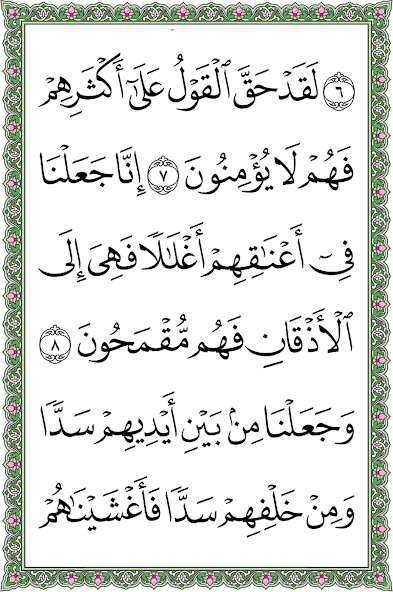 ٦ لَقَدۡ حَقَّ ٱلۡقَوۡلُ عَلَىٰٓ أَكۡثَرِهِمۡ
فَهُمۡ لَا يُؤۡمِنُونَ ٧ إِنَّا جَعَلۡنَا
فِيٓ أَعۡنَٰقِهِمۡ أَغۡلَٰلٗا فَهِيَ إِلَى
ٱلۡأَذۡقَانِ فَهُم مُّقۡمَحُونَ ٨
وَجَعَلۡنَا مِنۢ بَيۡنِ أَيۡدِيهِمۡ سَدّٗا
وَمِنۡ خَلۡفِهِمۡ سَدّٗا فَأَغۡشَيۡنَٰهُمۡ